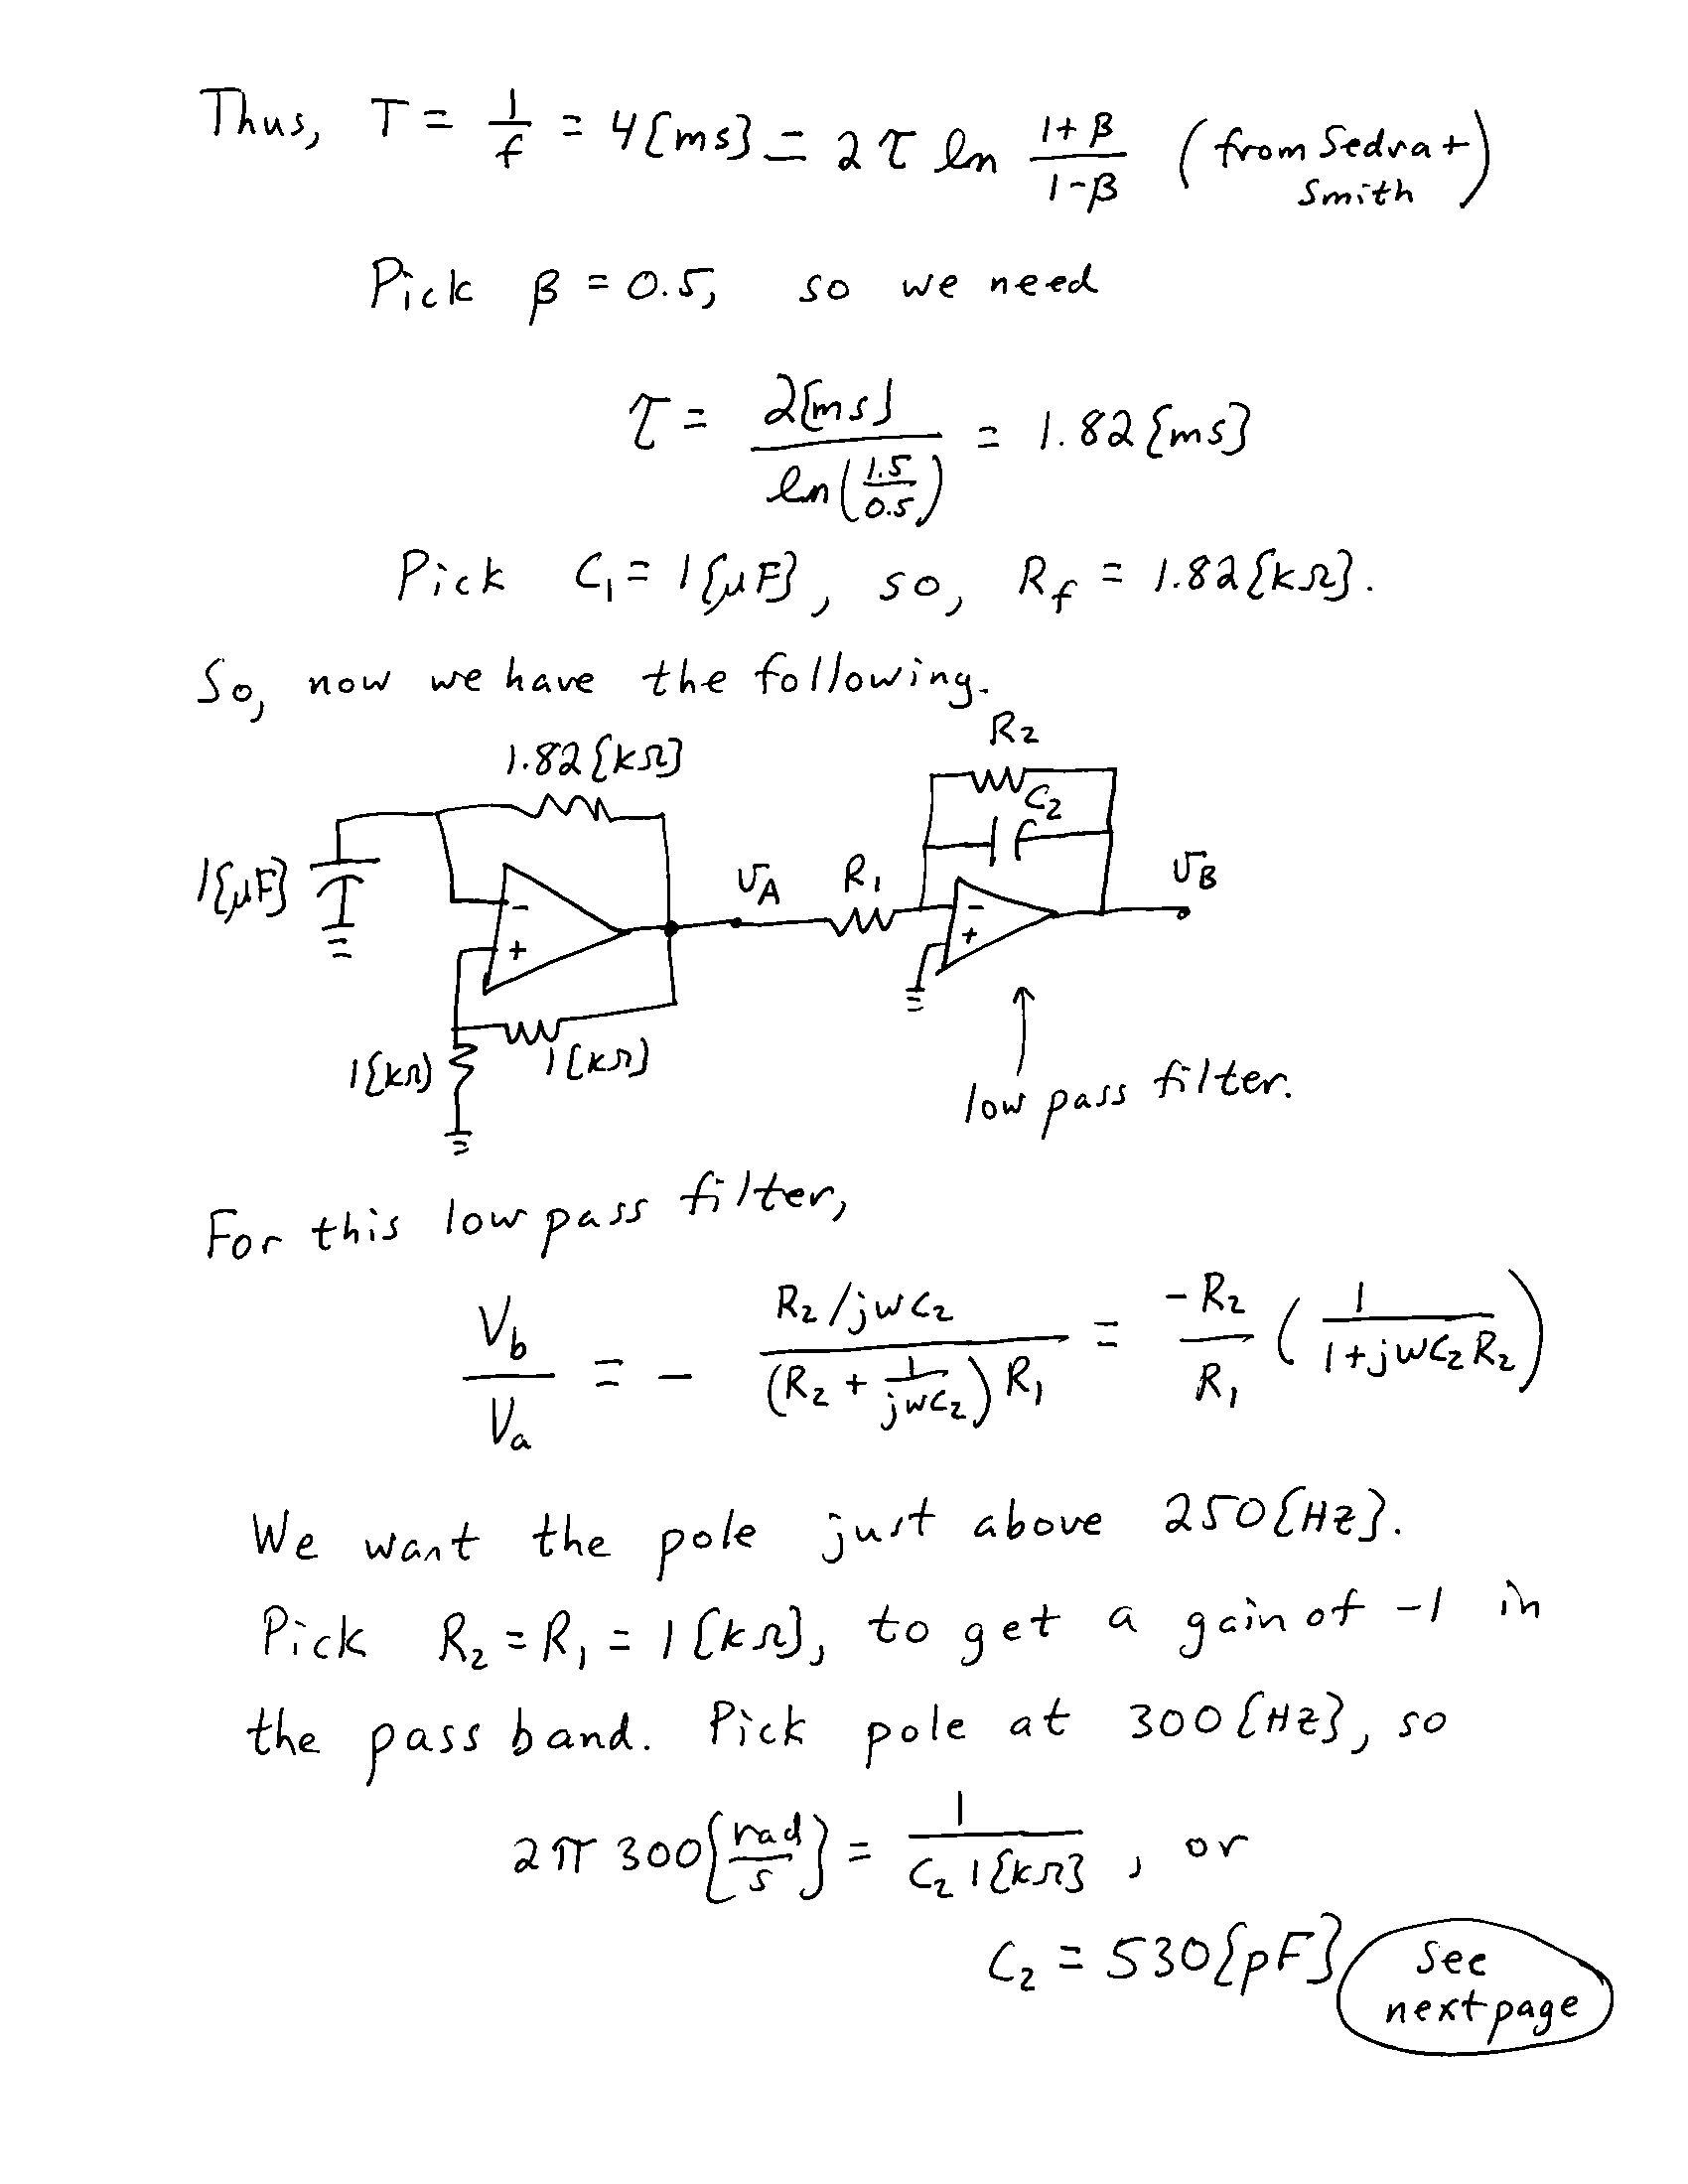 Thus, T = 1/f = 4{ms} = 2τ ln (1+β)/(1-β) (from Sedra + Smith)
Pick β = 0.5, so we need
τ = 2{ms} / ln(1.5/0.5) = 1.82{ms}
Pick C₁ = 1{μF}, so, R_f = 1.82{kΩ}.
So, now we have the following.
R₂
1.82{kΩ}
C₂
1{μF}
-
+
v_A
R₁
-
+
v_B
1{kΩ}
1{kΩ}
low pass filter.
For this low pass filter,
V_b/V_a = - (R₂/jωC₂) / ((R₂ + 1/jωC₂) R₁) = -R₂/R₁ (1/(1+jωC₂R₂))
We want the pole just above 250{Hz}.
Pick R₂ = R₁ = 1{kΩ}, to get a gain of -1 in
the pass band. Pick pole at 300{Hz}, so
2π 300{rad/s} = 1/(C₂ 1{kΩ}), or
C₂ = 530{pF}
See
next page